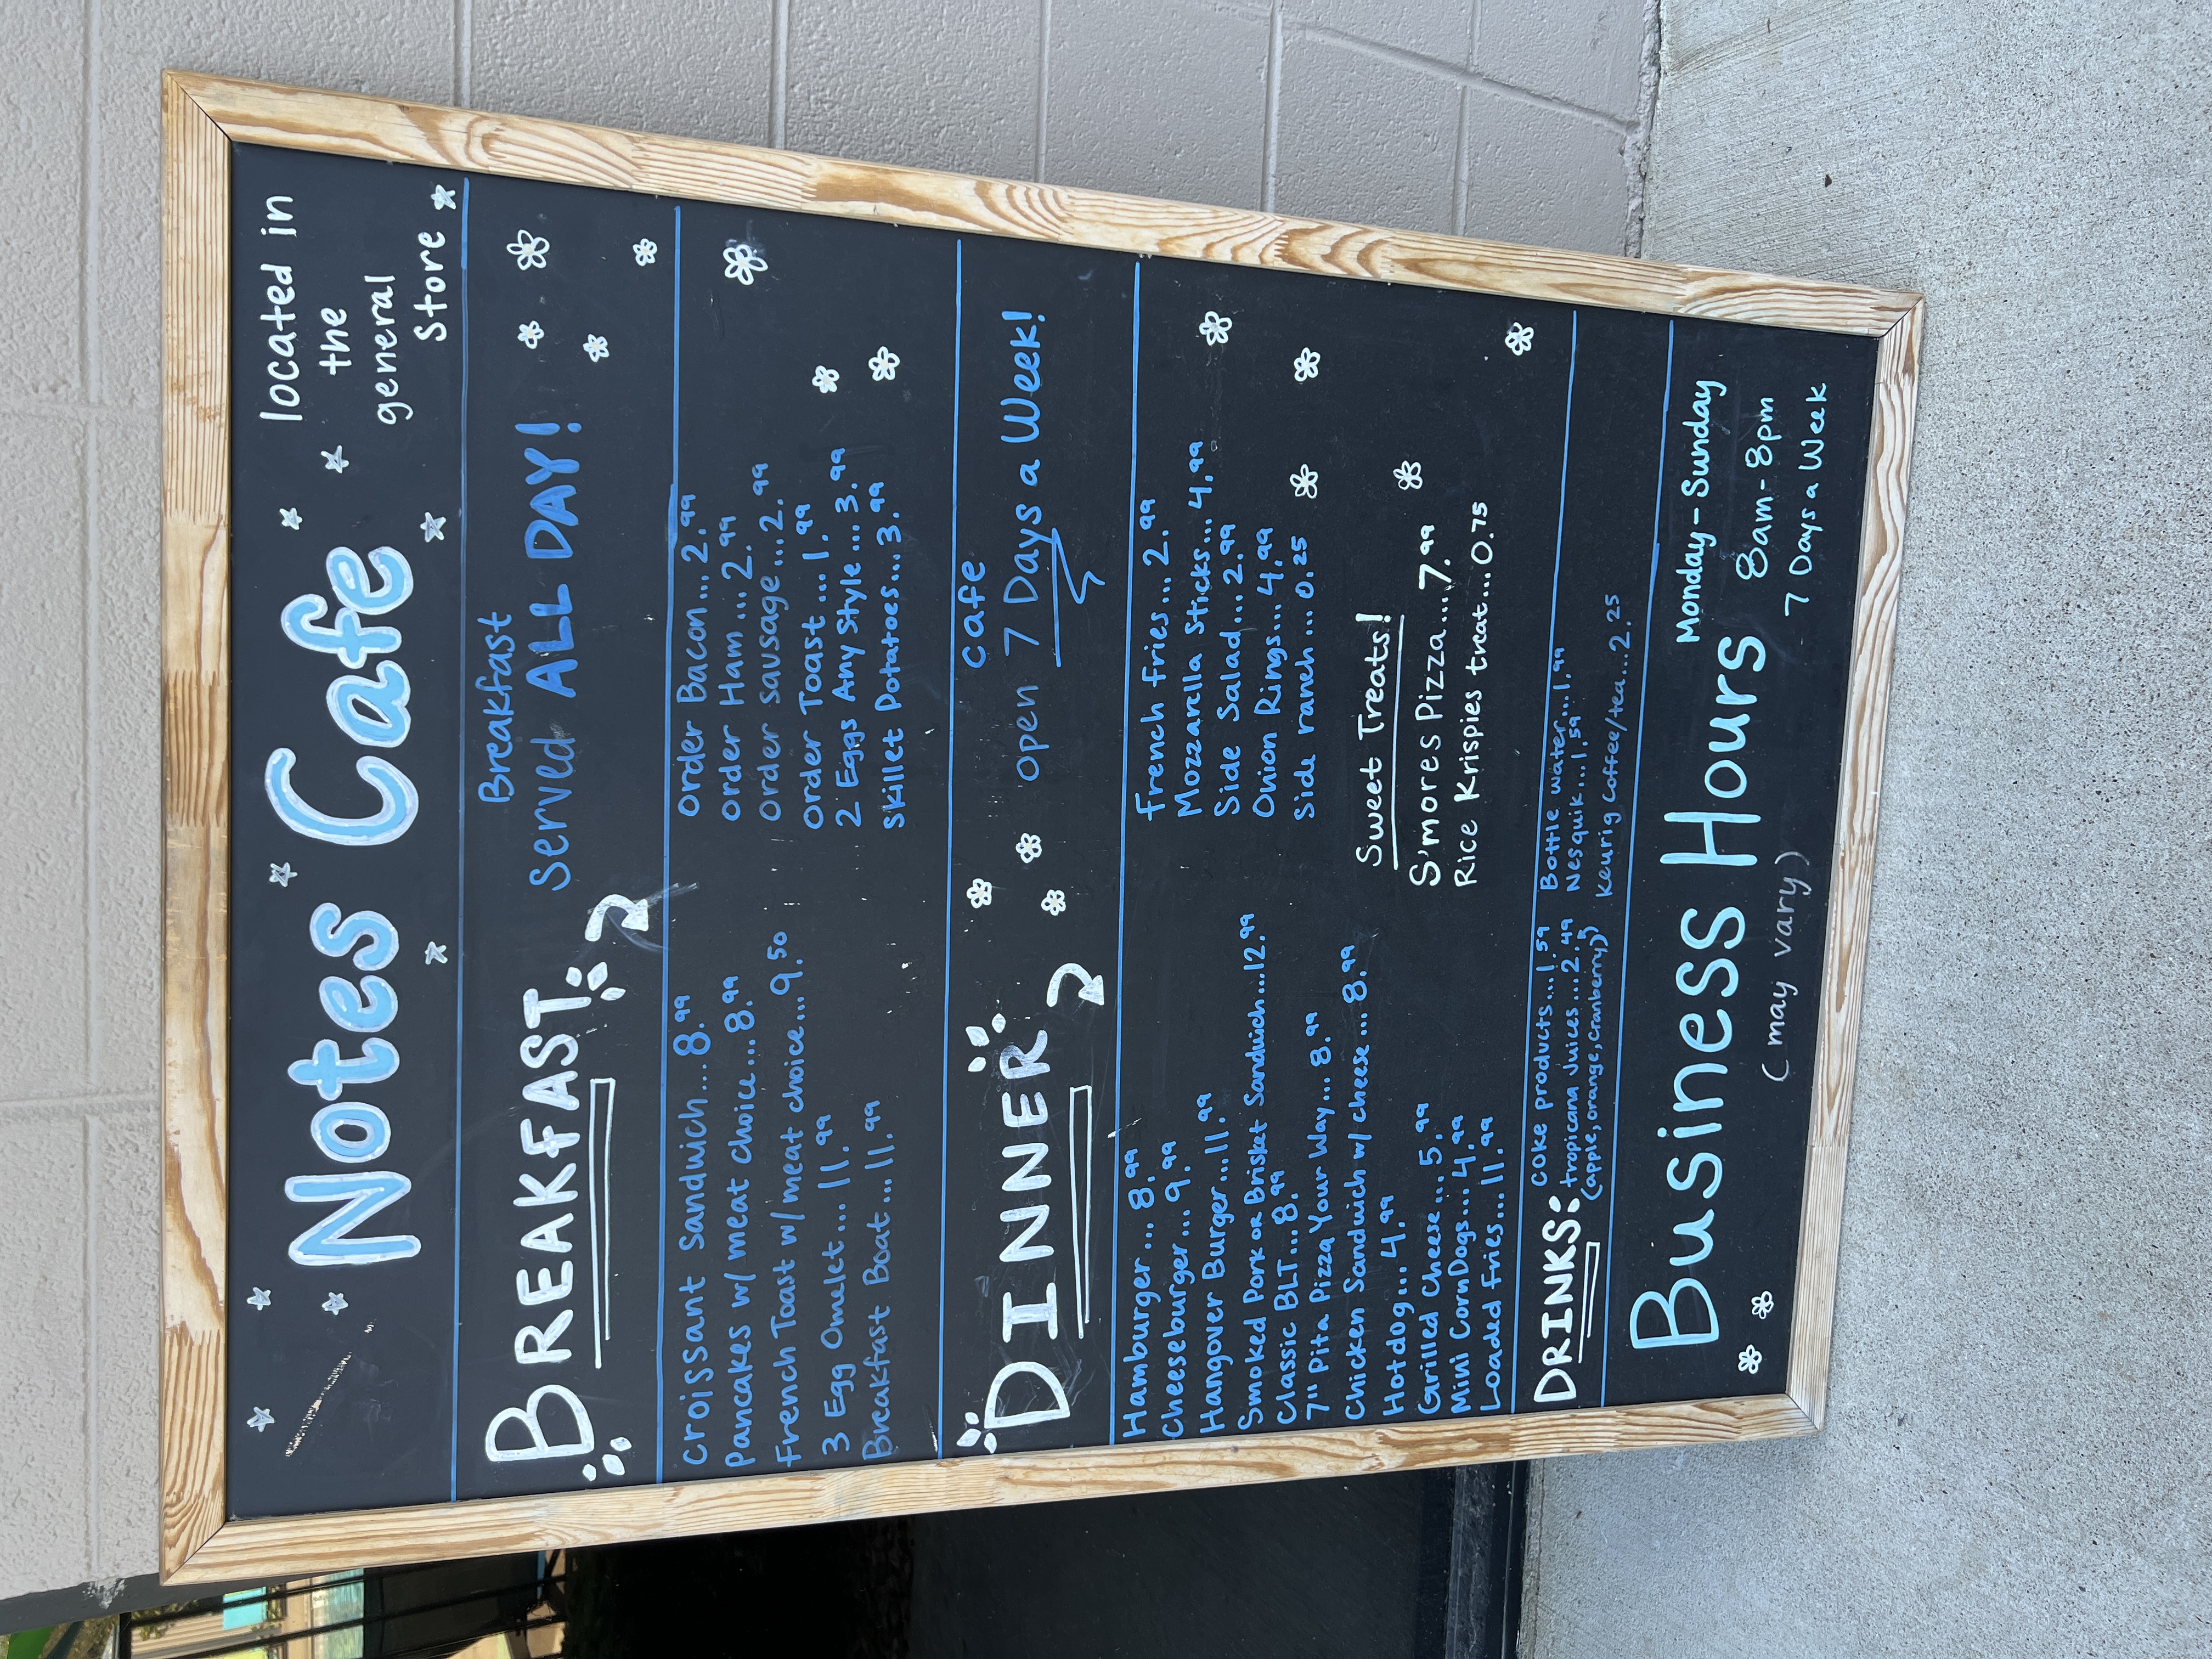 Notes Cafe
located in
the
general
store
BREAKFAST
Breakfast
served ALL DAY!
Croissant Sandwich...8.99
Pancakes w/ meat choice...8.99
French Toast w/ meat choice...9.50
3 Egg Omelet...11.99
Breakfast Boat...11.99
order Bacon...2.99
order Ham...2.99
order sausage...2.99
order Toast...1.99
2 Eggs Any Style...3.99
skillet Potatoes...3.99
DINNER
cafe
open 7 Days a Week!
Hamburger...8.99
Cheeseburger...9.99
Hangover Burger...11.99
Smoked Pork or Brisket Sandwich...12.99
Classic BLT...8.99
7" Pita Pizza Your Way...8.99
Chicken Sandwich w/ cheese...8.99
Hotdog...4.99
Grilled Cheese...5.99
Mini CornDogs...4.99
Loaded Fries...11.99
French Fries...2.99
Mozzarella Sticks...4.99
Side Salad...2.99
Onion Rings...4.99
Side ranch...0.25
Sweet Treats!
S'mores Pizza...7.99
Rice Krispies treat...0.75
DRINKS:
coke products...1.59
tropicana Juices...2.49
(apple, orange, cranberry)
Bottle water...1.99
Nesquik...1.59
Keurig Coffee/tea...2.25
Business Hours
(may vary)
Monday-Sunday
8am-8pm
7 Days a Week